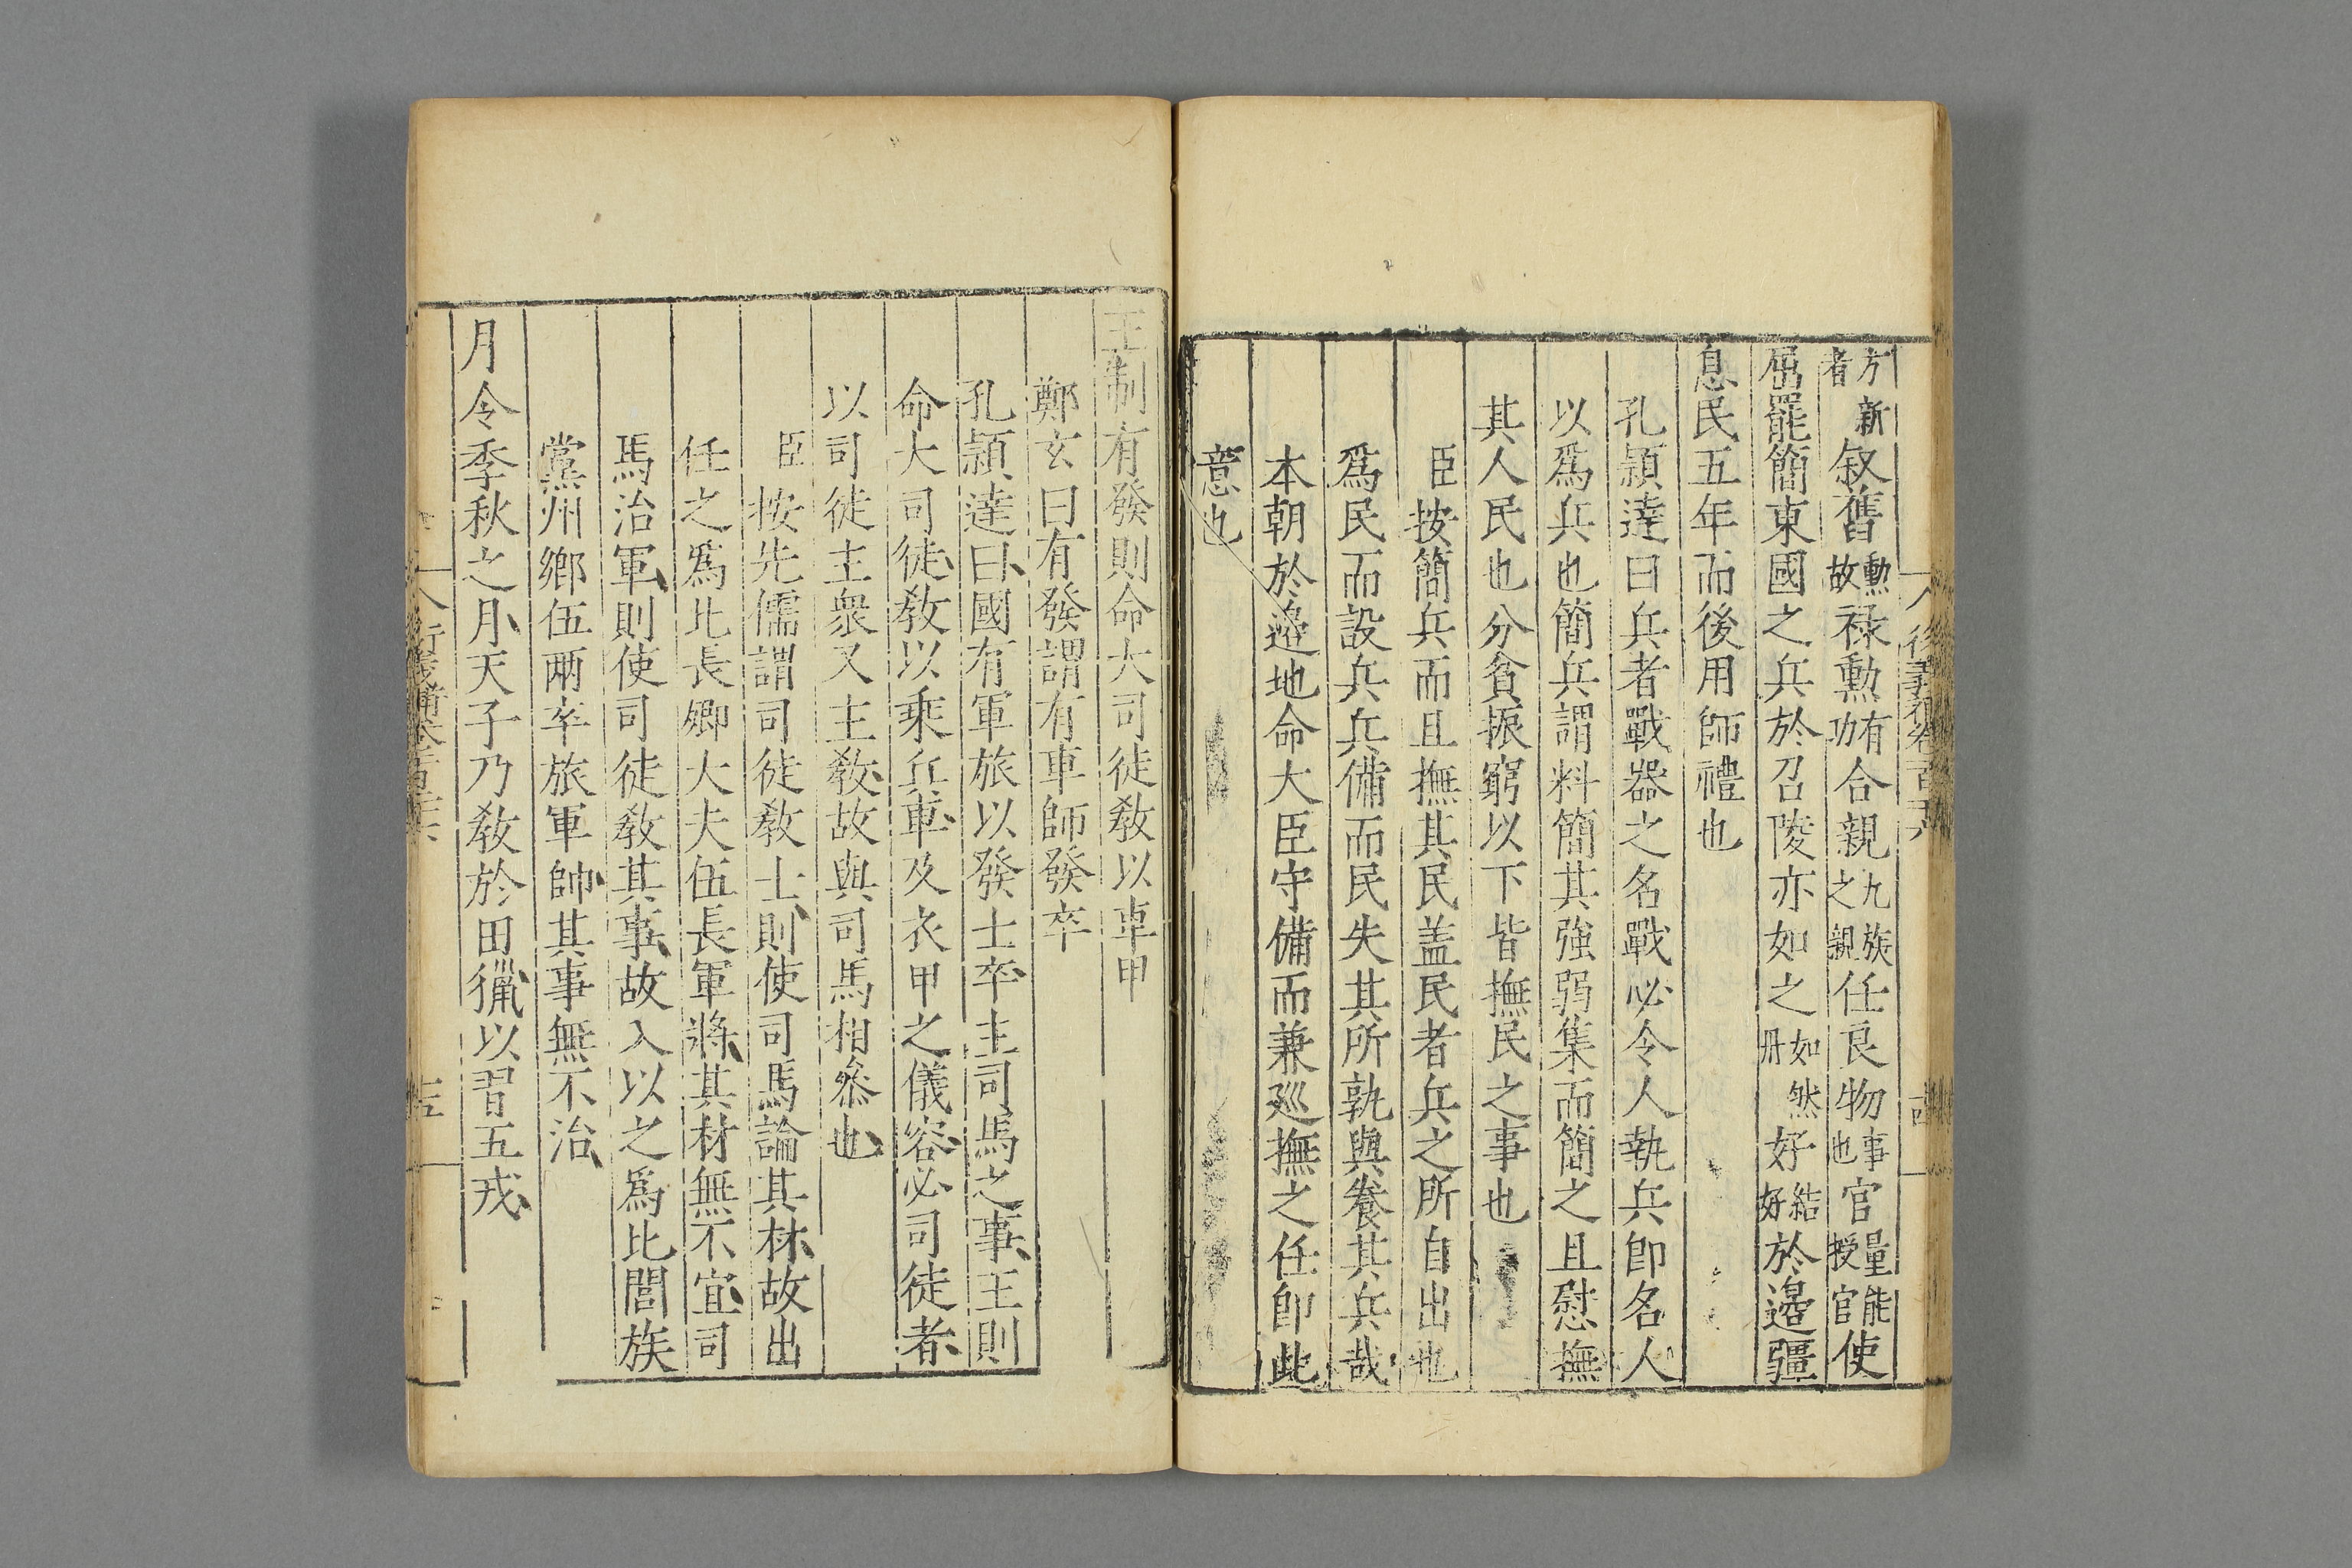 方者新叙舊勲故祿勲有功合親九族之親任良物事也官量能授官使
屈罷簡東國之兵於召陵亦如之如然丹好結好於邊疆
息民五年而後用師禮也
孔頴達曰兵者戰器之名戰必令人執兵即名人
以爲兵也簡兵謂料簡其強弱集而簡之且慰撫
其人民也分貧振窮以下皆撫民之事也
臣按簡兵而且撫其民盖民者兵之所自出也
爲民而設兵兵備而民失其所孰與養其兵哉
本朝於邊地命大臣守備而兼廵撫之任卽此
意也
王制有發則命大司徒敎以車甲
鄭玄曰有發謂有車師發卒
孔頴達曰國有軍旅以發士卒主司馬之事王則
命大司徒敎以乘兵車及衣甲之儀容必司徒者
以司徒主衆又主敎故與司馬相叅也
臣按先儒謂司徒敎士則使司馬論其材故出
任之爲比長卿大夫伍長軍將其材無不宜司
馬治軍則使司徒敎其事故入以之爲比閭族
黨州鄉伍兩卒旅軍帥其事無不治
月令季秋之月天子乃敎於田獵以習五戎